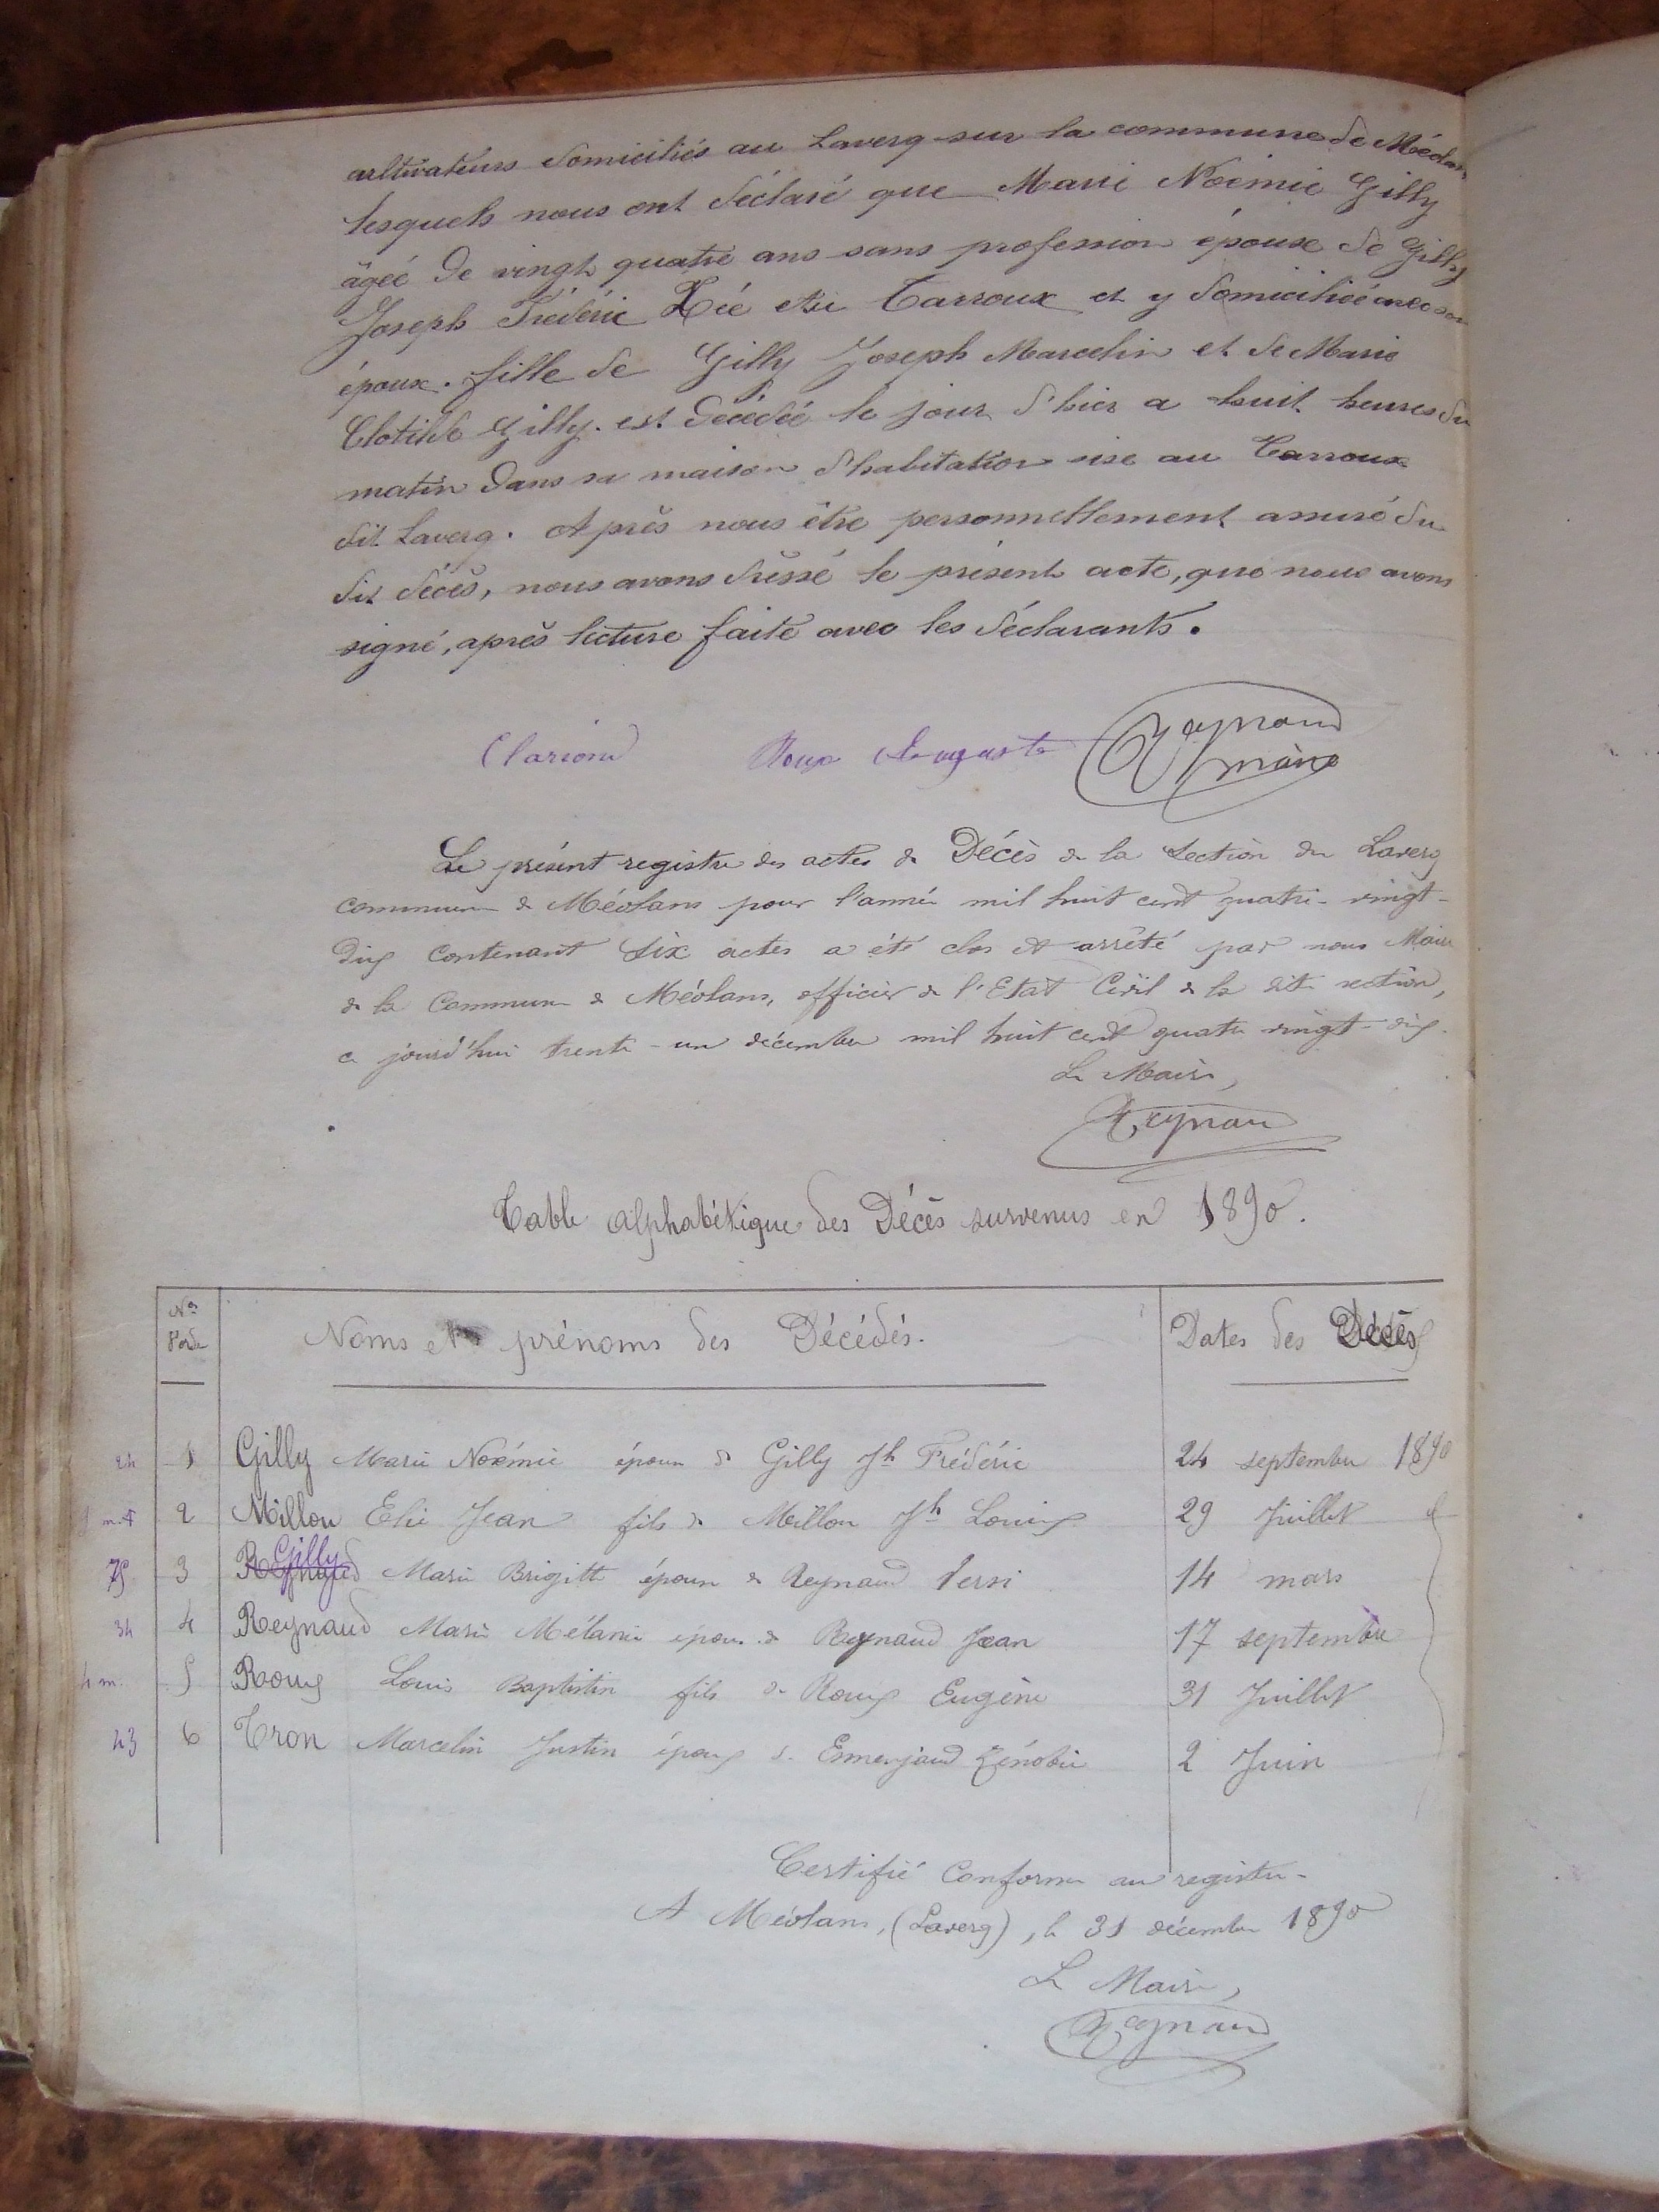 cultivateurs domiciliés au Laverq sur la commune de Méolans
lesquels nous ont déclaré que Marie Noémie Gilly
âgée de vingt quatre ans sans profession épouse de Gilly
Joseph Frédéric Née au Tarroux et y domiciliée avec son
époux. fille de Gilly Joseph Marcelin et de Marie
Clotilde Gilly. est décédée le jour d'hier a huit heures du
matin dans sa maison d'habitation sise au Tarroux
dit Laverq. Après nous être personnellement assuré du
dit décès, nous avons dressé le présent acte, que nous avons
signé, après lecture faite avec les déclarants.
Clariond Roux Auguste Reynaud
maire
Le présent registre des actes de Décès de la Section du Laverq
commune de Méolans pour l'année mil huit cent quatre-vingt-
dix contenant Six actes a été clos et arrêté par nous Maire
de la Commune de Méolans, officier de l'Etat Civil de la dite section,
ce jourd'hui trente-un décembre mil huit cent quatre vingt-dix.
Le Maire,
Reynaud
Table alphabétique des Décès survenus en 1890.
Nos d'ordre Noms et prénoms des Décédés. Dates des Décès
24 1 Gilly Marie Noémie épouse de Gilly Jh Frédéric 24 septembre 1890
2 Millou Elie Jean fils de Millou Jh Louis 29 Juillet
75 3 Reynaud Gilly Marie Brigitte épouse de Reynaud 14 mars
34 4 Reynaud Marie Mélanie épouse de Reynaud Jean 17 septembre
4 m. 5 Roux Louis Baptistin fils de Roux Eugène 31 Juillet
43 6 Tron Marcelin Justin époux de Esmenjaud Zénobie 2 Juin
Certifié Conforme au registre-
A Méolans, (Laverq), le 31 décembre 1890
Le Maire,
Reynaud